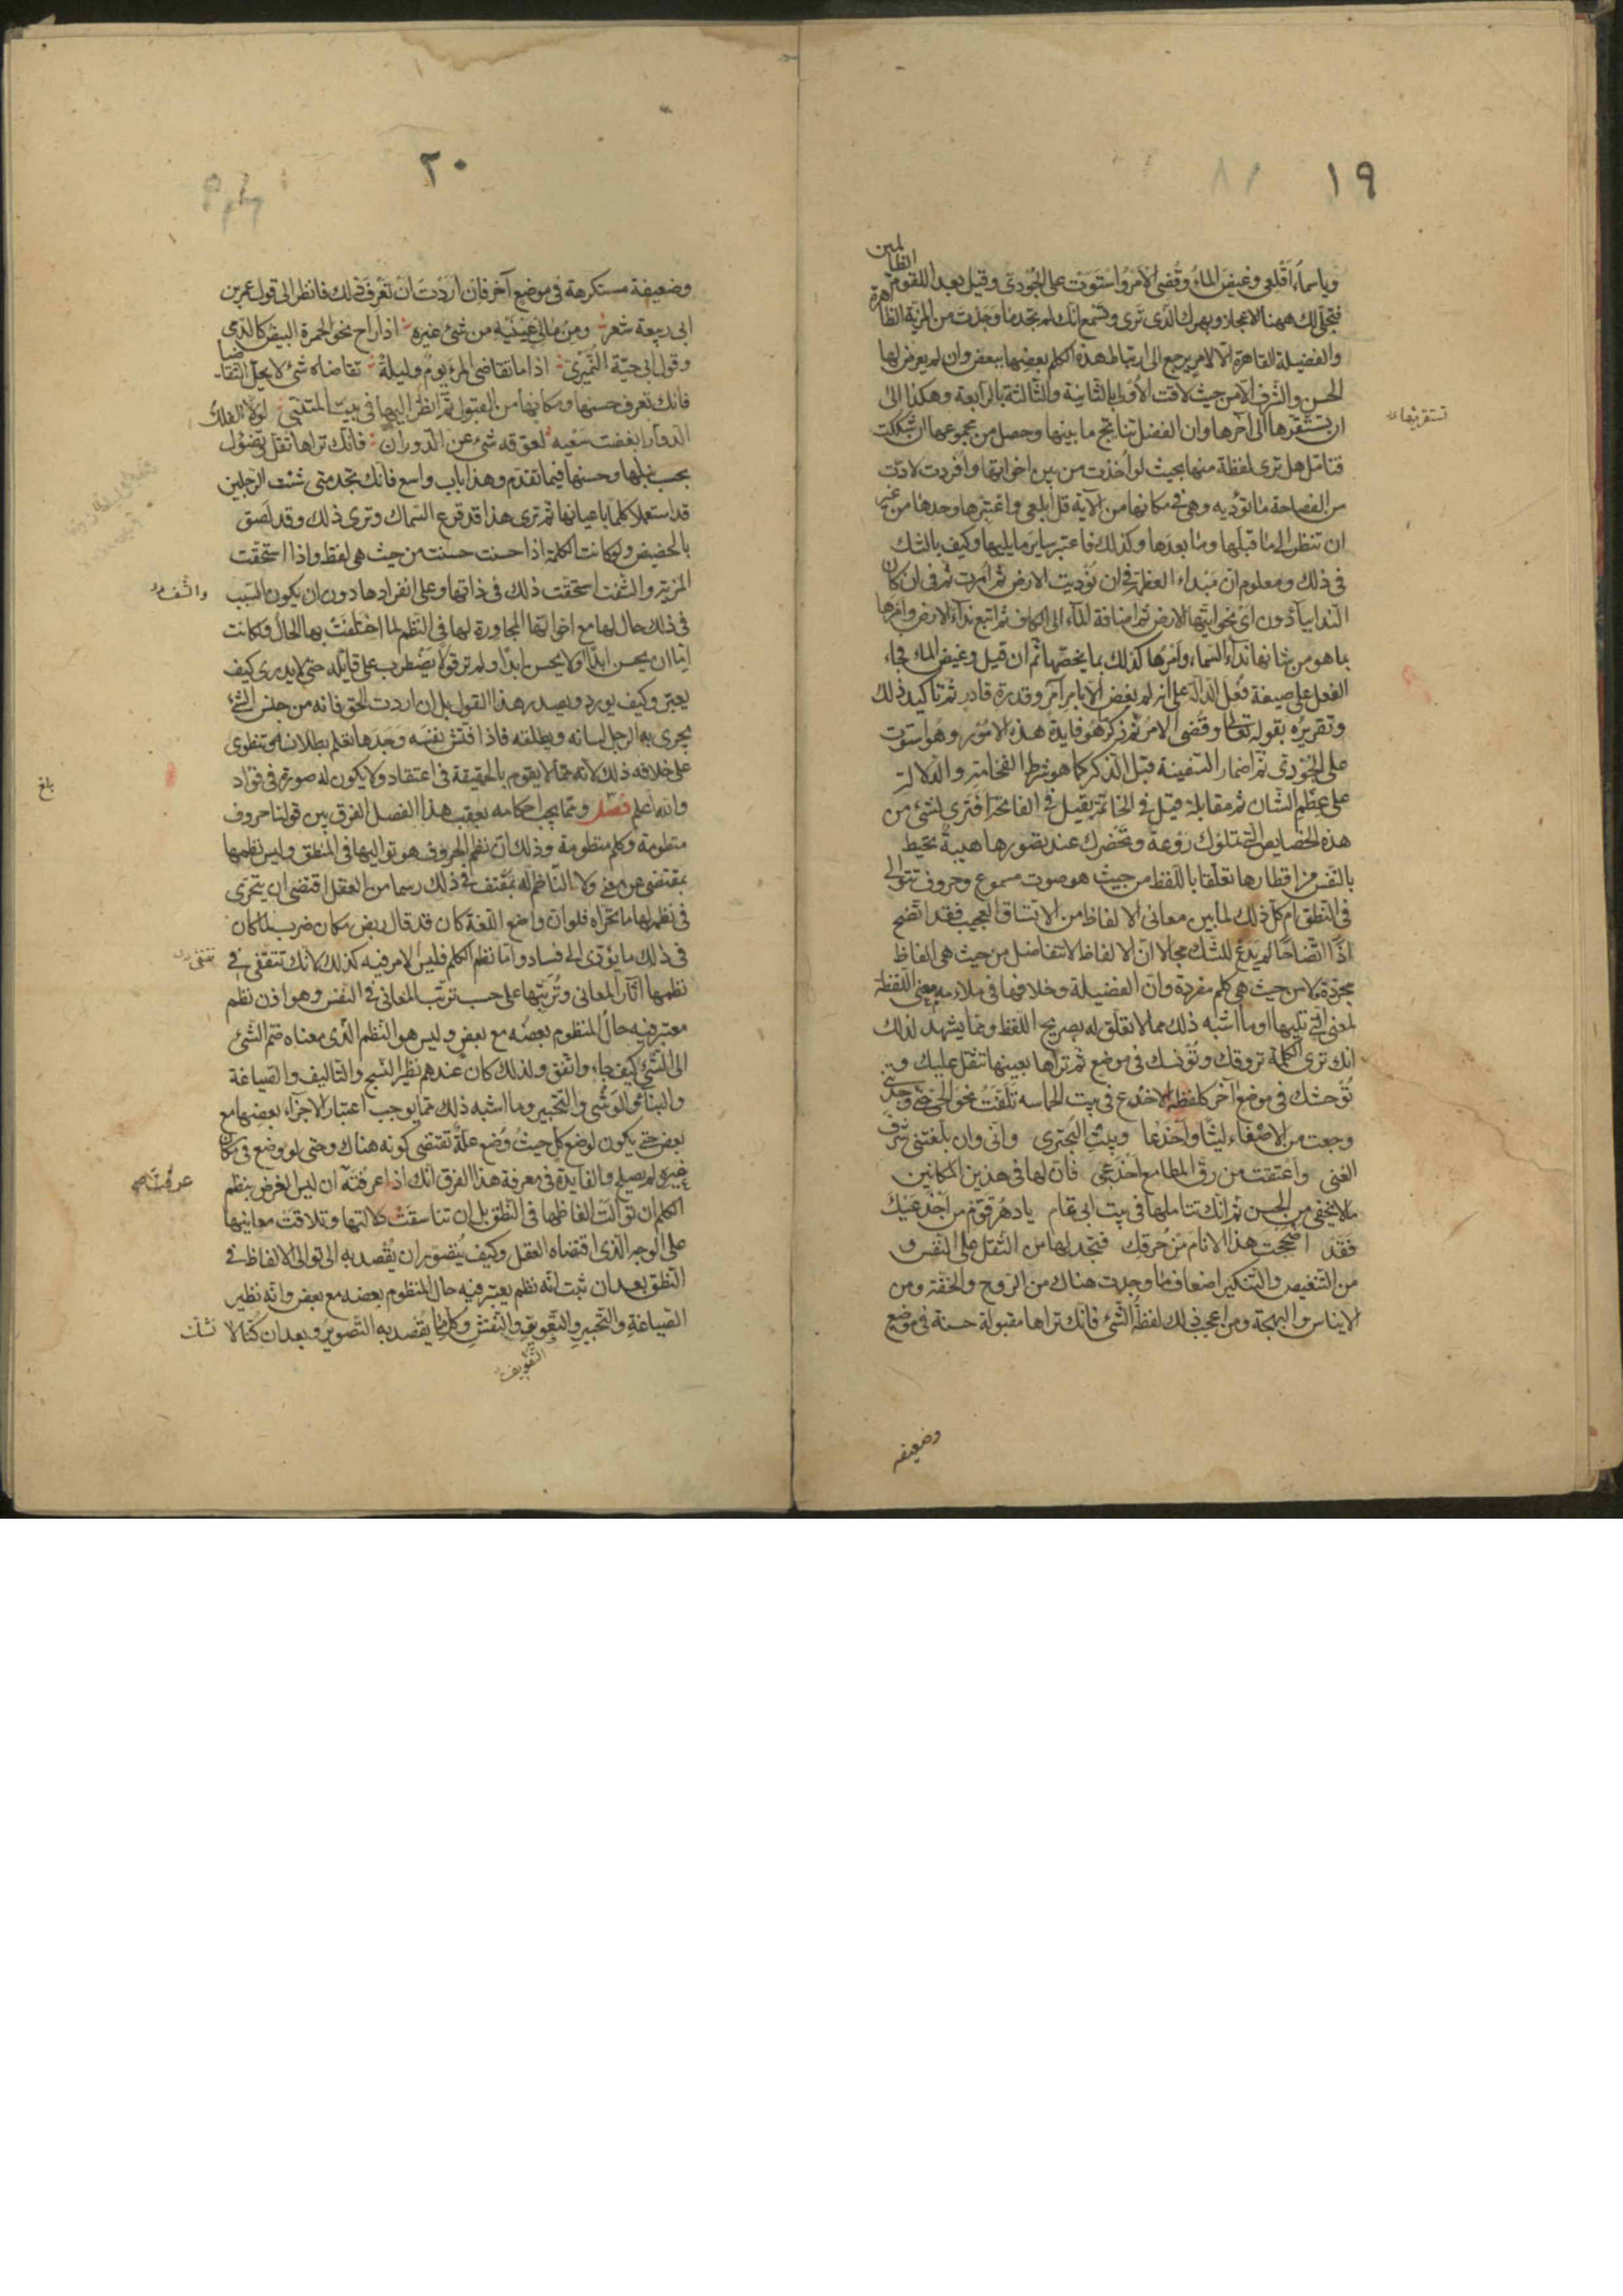 ١٩
وياسماء اقلعى وغيض الماء وقضى الامر واستوت على الجودى وقيل بعدا للقوم الظالمين
فتجلى لك ههنا الاعجاز وبهرك الذى ترى وتسمع انك لم تجد ما وجدت من المزية الظاهرة
والفضيلة القاهرة الا لامر يرجع الى ارتباط هذه الكلم بعضها ببعض وان لم يعرض لها
الحسن والشرف الا من حيث لاقت الاولى بالثانية والثالثة بالرابعة وهكذا الى
ان يستقرها الى آخرها وان الفضل تناتج ما بينها وحصل من مجموعها ان شككت
تستقريها
فتامل هل ترى لفظة منها بحيث لو أخذت من بين اخواتها وافردت لادّت
من الفصاحة ما تؤديه وهى فى مكانها من الآية قل ابلعى واعتبرها وحدها من غير
ان تنظر الى ما قبلها وما بعدها وكذلك فاعتبر ساير ما يليها وكيف بالشك
فى ذلك ومعلوم ان مبداء العظمة فى ان نوديت الارض ثم امرت ثم فى ان كان
النداء بيا دون اىّ نحو ايتها الارض ثم اضافة الماء الى الكاف ثم اتبع نداء الارض وامرها
بما هو من شانها نداء السماء وامرها كذلك بما يخصّها ثم ان قيل وغيض الماء فجاء
الفعل على صيغة فُعِل الدالة على انه لم يغض الا بامر آمر وقدرة قادر ثم تاكيد ذلك
وتقريره بقوله تعالى وقُضى الامر ثم ذكر ما هو فايدة هذه الامور وهو استوت
على الجودى ثم اضمار السفينة قبل الذكر كما هو شرط الفخامة والدلالة
على عظم الشان ثم مقابلة قيل فى الخاتمة بقيل فى الفاتحة افترى لشئ من
هذه الخصايص التى تملؤك روعة وتحضرك عند تصورها هيبة تحيط
بالنفس من اقطارها تعلّقا باللفظ من حيث هو صوت مسموع وحروف تتوالى
فى النطق ام كل ذلك لما بين معانى الالفاظ من الاتساق العجيب فقد اتّضح
اذًا اتّضاحًا لم يدع للشك مجالا ان الالفاظ لا تتفاضل من حيث هى الفاظ
مجرّدة ولا من حيث هى كلم مفردة وان الفضيلة وخلافها فى ملاءمة معنى اللفظة
لمعنى التى تليها او ما اشبه ذلك مما لا تعلّق له بصريح اللفظ ومما يشهد لذلك
انك ترى الكلمة تروقك وتؤنسك فى موضع ثم تراها بعينها تثقل عليك و
توحشك فى موضع آخر كلفظة الاخدع فى بيت الحماسه تَلَفَّتُّ نحو الحىّ حتى وجدتنى
وجعت من الاصغاء ليتًا واَخدعا وبيت البحترى وانى وان بلغتنى شرف
الغنى واعتقت من رق المطامع اخدعى فان لها فى هذين المكانين
ما لا يخفى من الحسن ثم انك تتاملها فى بيت ابى تمام يا دهر قوّم من اخدعيك
فقد اضججت هذا الانام من خرقك فتجد لها من الثقل على النفس و
من التنغيص والتنكير اضعاف ما وجدت هناك من الرّوح والخفة ومن
الايناس والبهجة ومن اعجب ذلك لفظة الشئ فانك تراها مقبولة حسنة فى موضع
وضعيفه
٢٠
وضعيفة مستكرهة فى موضع آخر فان اردت ان تعرف ذلك فانظر الى قول عمر بن
ابى ربيعة شعر ومن مالئ عينيه من شئ غيره اذا راح نحو الجمرة البيض كالدمى
وقول ابى حيّة النُميرى اذا ما تقاضى المرء يوم وليلة تقاضاه شئ لا يملّ التقاضيا
فانك تعرف حسنها ومكانها من القبول ثم انظر اليها فى بيت المتنبّى لو الفلك
الدوار ابغضت سعيه لعوّقه شئ عن الدوران فانك تراها تقلّ وتضؤل
بحسب نبلها وحسنها فيما تقدم وهذا باب واسع فانك تجد متى شئت الرجلين
قد استعملا كلما باعيانها ثم ترى هذا قد فرع السماك وترى ذلك وقد لصق
بالحضيض ولو كانت الكلمة اذا حسنت حسنت من حيث هى لفظ واذا استحقّت
المزية والشرف استحقّت ذلك فى ذاتها وعلى انفرادها دون ان يكون السبب
والشرف
فى ذلك حال لها مع اخواتها المجاورة لها فى النظم لما اختلفت بها الحال ولكانت
اما ان يحسن ابدًا او لا يحسن ابدًا ولم تر قولا يضطرب على قايله حتى لا يدرى كيف
يعبّر وكيف يورد ويصدر هذا القول بل ان اردت الحق فانه من جنس الشئ
يجرى به الرجل لسانه ويطلقه فاذا فتّش نفسه وجدها تعلم بطلانه وتنطوى
على خلافه ذلك لانه مما لا يقوم بالحقيقة فى اعتقاد ولا يكون له صورة فى فؤاد
بلغ
والله اعلم فصل ومما يجب احكامه بعقب هذا الفصل الفرق بين قولنا حروف
منظومة وكلم منظومة وذلك ان نظم الحروف هو تواليها فى النطق وليس نظمها
بمقتضى عن معنى ولا الناظم له بمقتف فى ذلك رسما من العقل اقتضى ان يتحرّى
فى نظمه لها ما تحراه فلو ان واضع اللغة كان قد قال ربض مكان ضرب لما كان
فى ذلك ما يؤدى الى فساد واما نظم الكلم فليس الامر فيه كذلك لانك تقتفى فى
تقتفى
نظمها آثار المعانى وتُرتّبها على حسب ترتّب المعانى فى النفس وهو اذن نظم
معتبر فيه حال المنظوم بعضه مع بعض وليس هو النظم الذى معناه ضم الشئ
الى الشئ كيف جاء واتفق ولذلك كان عندهم نظير النسج والتاليف والصياغة
والبناء والوشى والتحبير وما اشبه ذلك مما يوجب اعتبار الاجزاء بعضها مع
بعض حتى يكون لوضع كلٍ حيث وُضع علّة تقتضى كونه هناك وحتى لو وضع فى مكان
غيره لم يصلح والفايدة فى معرفة هذا الفرق انك اذا عرفته ان ليس الغرض بنظم
عرفت
الكلم ان توالت الفاظها فى النطق بل ان تناسقت دلالتها وتلاقت معانيها
على الوجه الذى اقتضاه العقل وكيف يتصوّر ان يُقصد به الى توالى الالفاظ فى
النطق بعد ان ثبت انه نظم يعتبر فيه حال المنظوم بعضه مع بعض وانه نظير
الصياغة والتحبير والتفويف والنقش وكل ما يُقصد به التصوير وبعد ان كنا لا نشك
التفويف